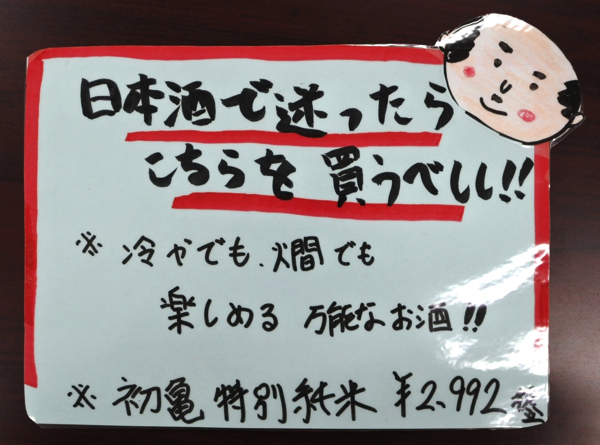 日本酒で迷ったら
こちらを買うべしし!!
※ 冷やでも、燗でも
楽しめる 万能なお酒!!
※ 初亀 特別純米 ¥2,992